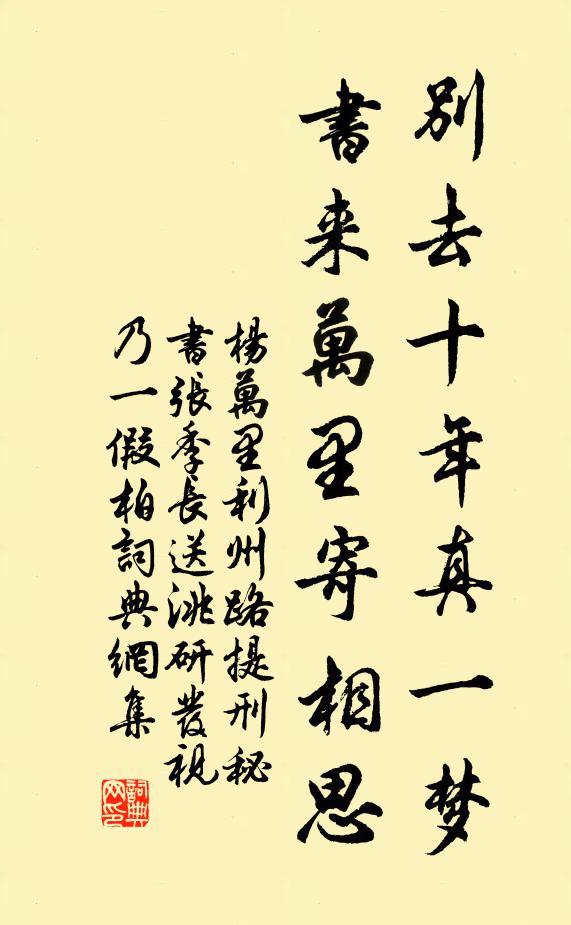 別去十年真一梦
書来萬里寄相思
楊萬里利州路提刑秘
書張季長送洮研發視
乃一假柏詞典網集
詞典网印